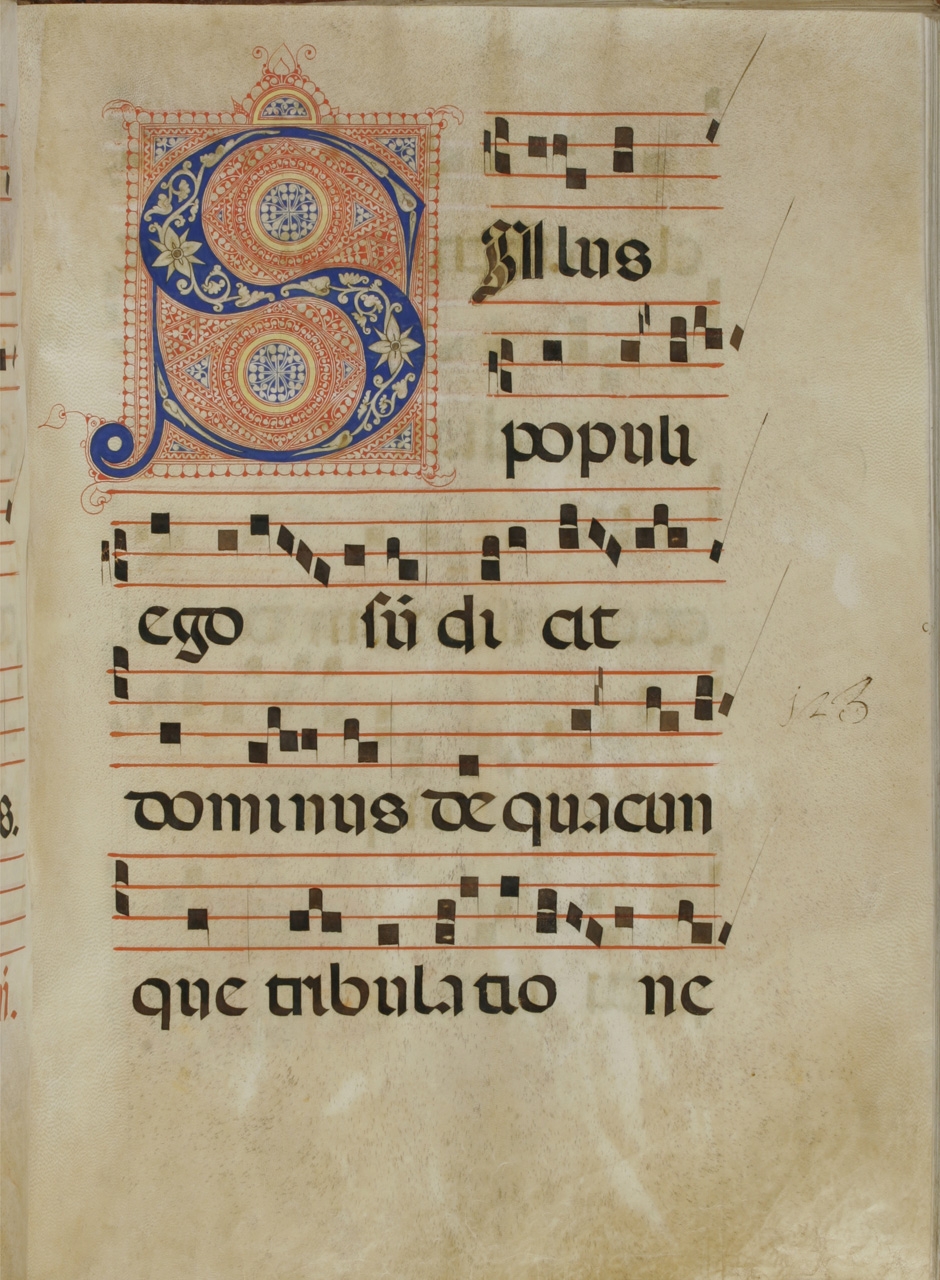 SA lus
populi
ego sū di cit
123
dominus de quacun
que tribula tio ne